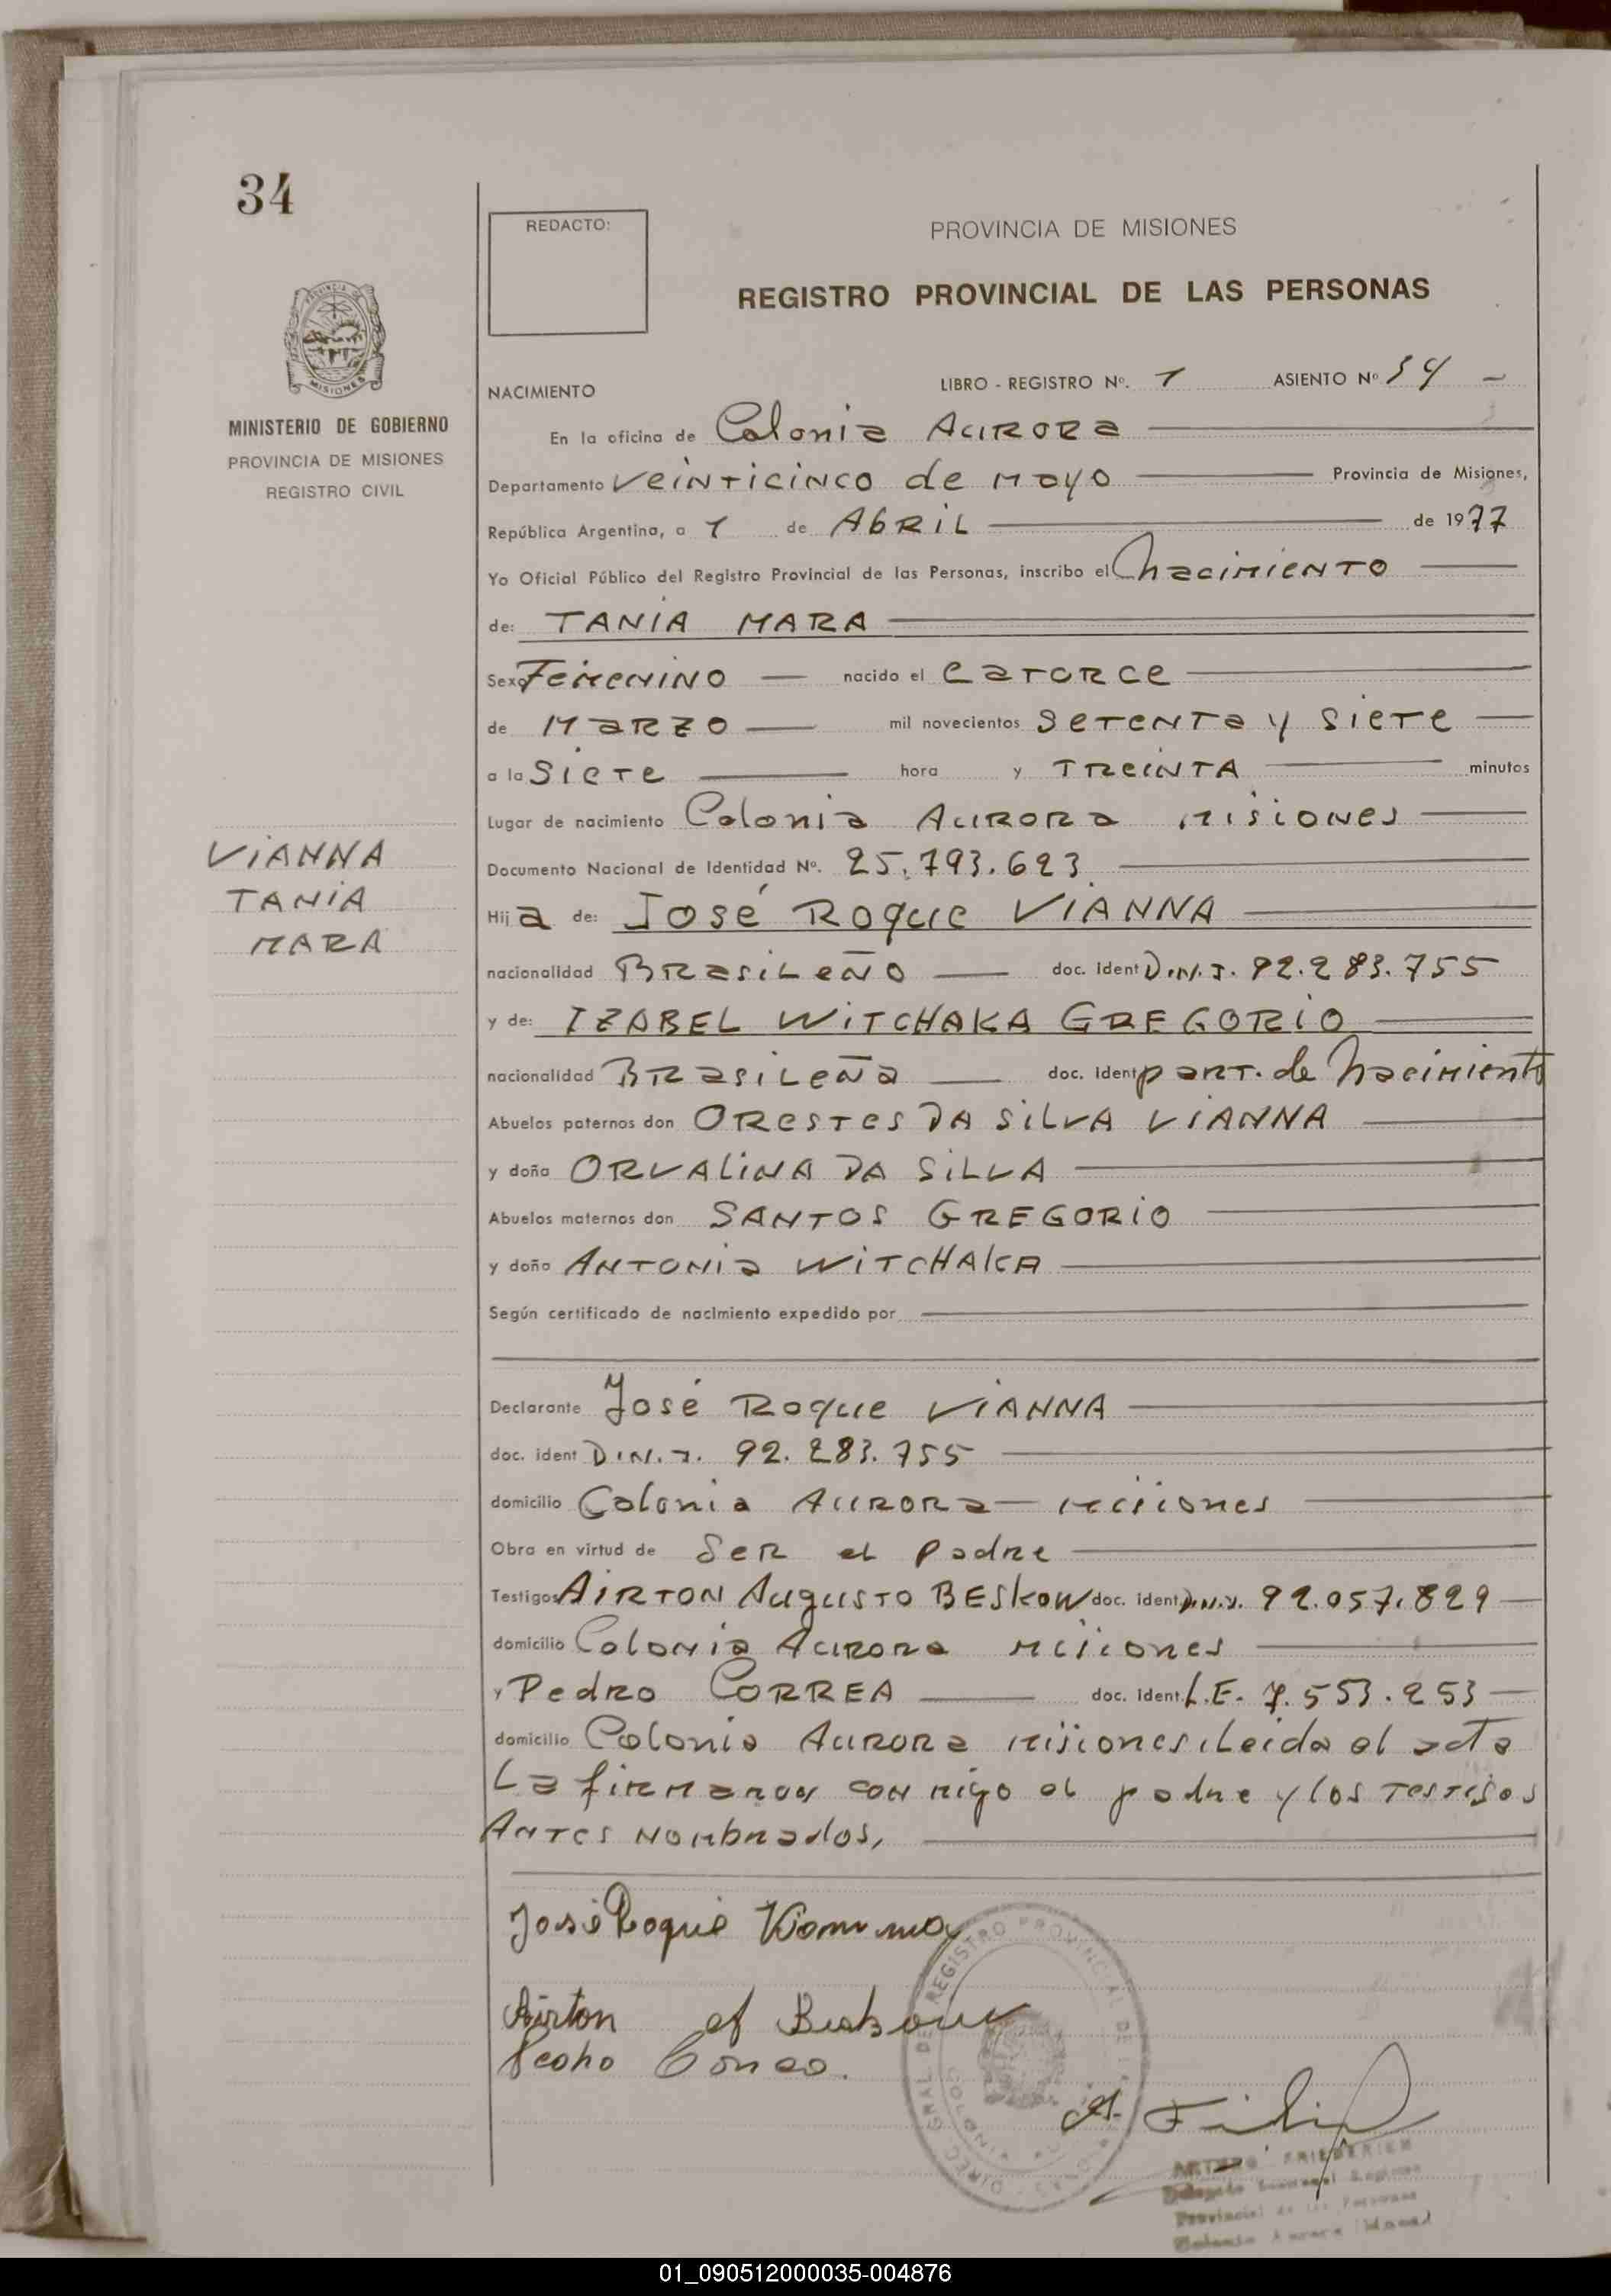 34
REDACTO:
PROVINCIA DE MISIONES
REGISTRO PROVINCIAL DE LAS PERSONAS
PROVINCIA DE
MISIONES
MINISTERIO DE GOBIERNO
PROVINCIA DE MISIONES
REGISTRO CIVIL
NACIMIENTO LIBRO - REGISTRO Nº. 1 ASIENTO Nº 34 -
En la oficina de Colonia AURORA
Departamento veinticinco de mayo Provincia de Misiones,
República Argentina, a 1 de Abril de 1977
Yo Oficial Público del Registro Provincial de las Personas, inscribo el Nacimiento
de: TANIA MARA
Sexo Femenino nacido el catorce
de Marzo mil novecientos setenta y siete
a la Siete hora y Treinta minutos
Lugar de nacimiento Colonia Aurora Misiones
VIANNA
TANIA
MARA
Documento Nacional de Identidad Nº. 25.793.623
Hija de: José Roque VIANNA
nacionalidad Brasileño doc. ident D.N.I. 92.283.755
y de: IZABEL WITCHAKA GREGORIO
nacionalidad Brasileña doc. ident part. de Nacimiento
Abuelos paternos don Orestes DA SILVA VIANNA
y doña ORVALINA DA SILVA
Abuelos maternos don SANTOS GREGORIO
y doña Antonia WITCHAKA
Según certificado de nacimiento expedido por
Declarante José Roque VIANNA
doc. ident D.N.I. 92.283.755
domicilio Colonia Aurora - Misiones
Obra en virtud de Ser el padre
Testigos AIRTON Augusto BESKOW doc. ident. D.N.I. 92.057.829
domicilio Colonia Aurora Misiones
y Pedro CORREA doc. ident. L.E. 7.553.253
domicilio Colonia Aurora Misiones, Leida el acta
La firmaron conmigo el padre y los testigos
Antes nombrados,
José Roque Vianna
Airton A Beskow
Pedro Correa.
DIREC. GRAL DE REGISTRO PROVINCIAL DE LAS PERSONAS
COLONIA
ARTURO FRIEDERICH
Provincial de las Personas
Colonia Aurora
01_090512000035-004876